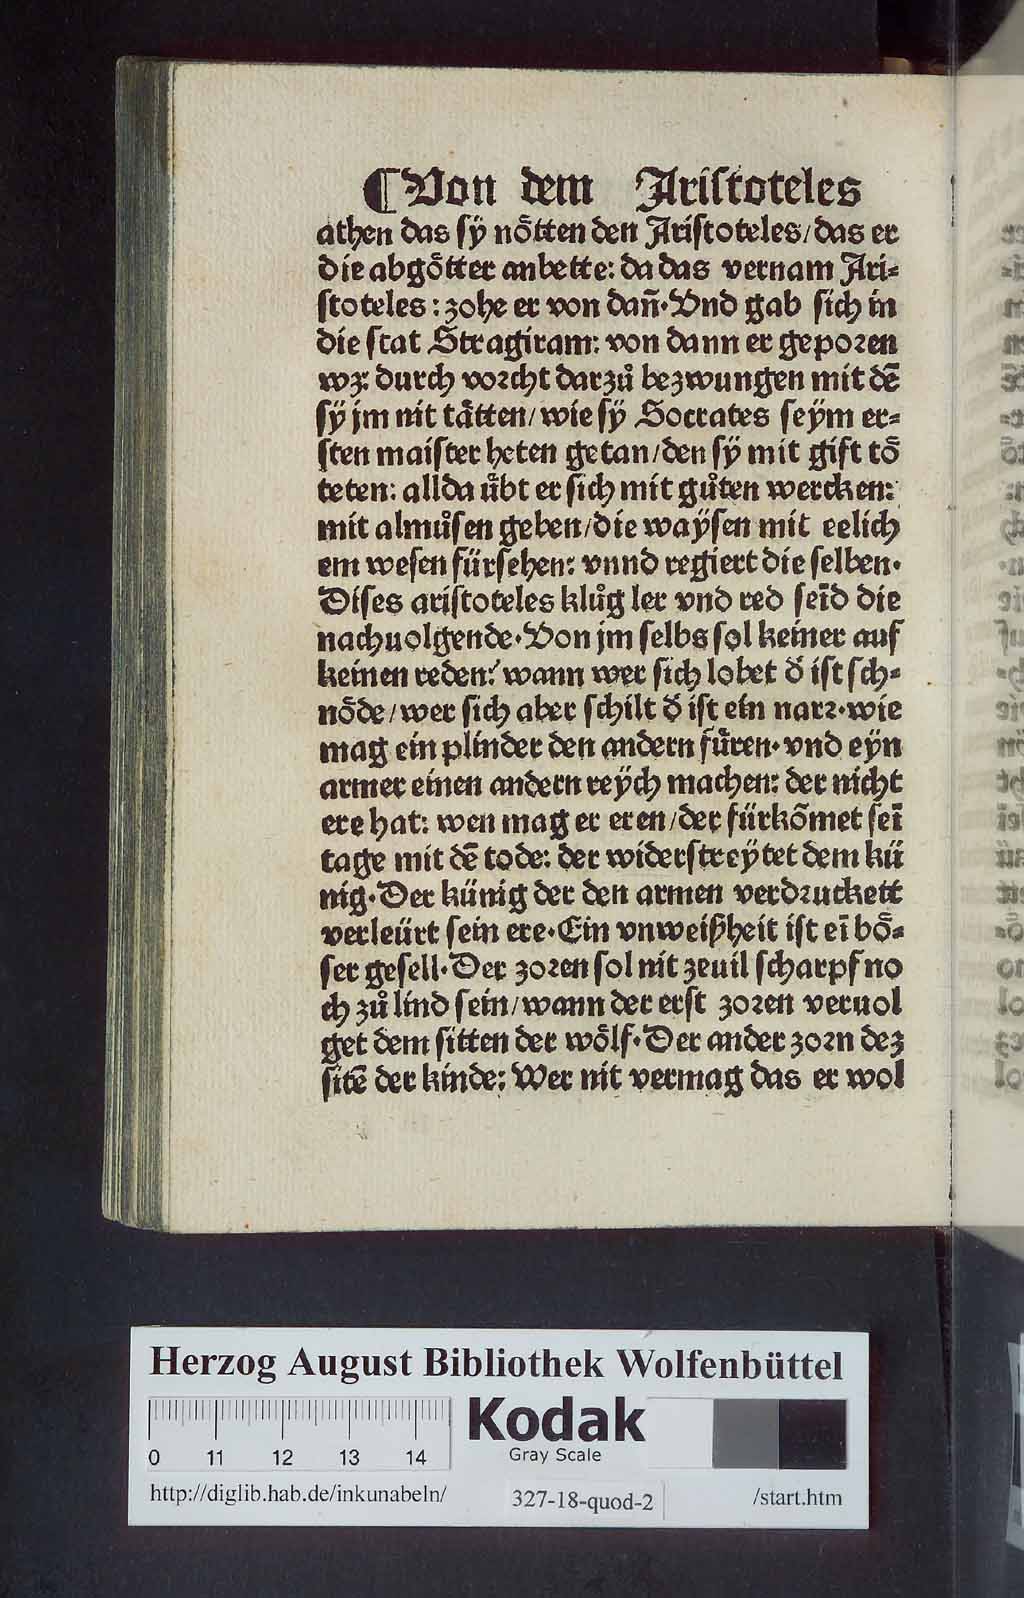 ¶Von dem Aristoteles
athen das sÿ noͤtten den Aristoteles/das er
die abgoͤtter anbette: da das vernam Ari⸗
stoteles: zohe er von dañ·Vnd gab sich in
die stat Stragiram: von dann er geporen
wz: durch vorcht darzů bezwungen mit dē
sÿ jm nit taͤtten/wie sÿ Socrates seÿm er⸗
sten maister heten getan/den sÿ mit gift toͤ
teten: allda uͤbt er sich mit gůten wercken:
mit almůsen geben/die waÿsen mit eelich
em wesen fürsehen: vnnd regiert die selben·
Dises aristoteles klůg ler vnd red seīd die
nachuolgende·Von jm selbs sol keiner auf
keinen reden: wann wer sich lobet d̕ ist sch⸗
noͤde/wer sich aber schilt d̕ ist ein narr·wie
mag ein plinder den andern fuͤren·vnd eÿn
armer einen andern reÿch machen: der nicht
ere hat: wen mag er eren/der fürkōmet seī
tage mit dē tode: der widerstreÿtet dem kü
nig·Der künig der den armen verdruckett
verleürt sein ere·Ein vnweißheit ist eī boͤ⸗
ser gesell·Der zoren sol nit zeuil scharpf no
ch zů lind sein/wann der erst zoren veruol
get dem sitten der woͤlf·Der ander zorn dez
sitē der kinde: Wer nit vermag das er wol
Herzog August Bibliothek Wolfenbüttel
Kodak
Gray Scale
0 11 12 13 14
http://diglib.hab.de/inkunabeln/ 327-18-quod-2 /start.htm